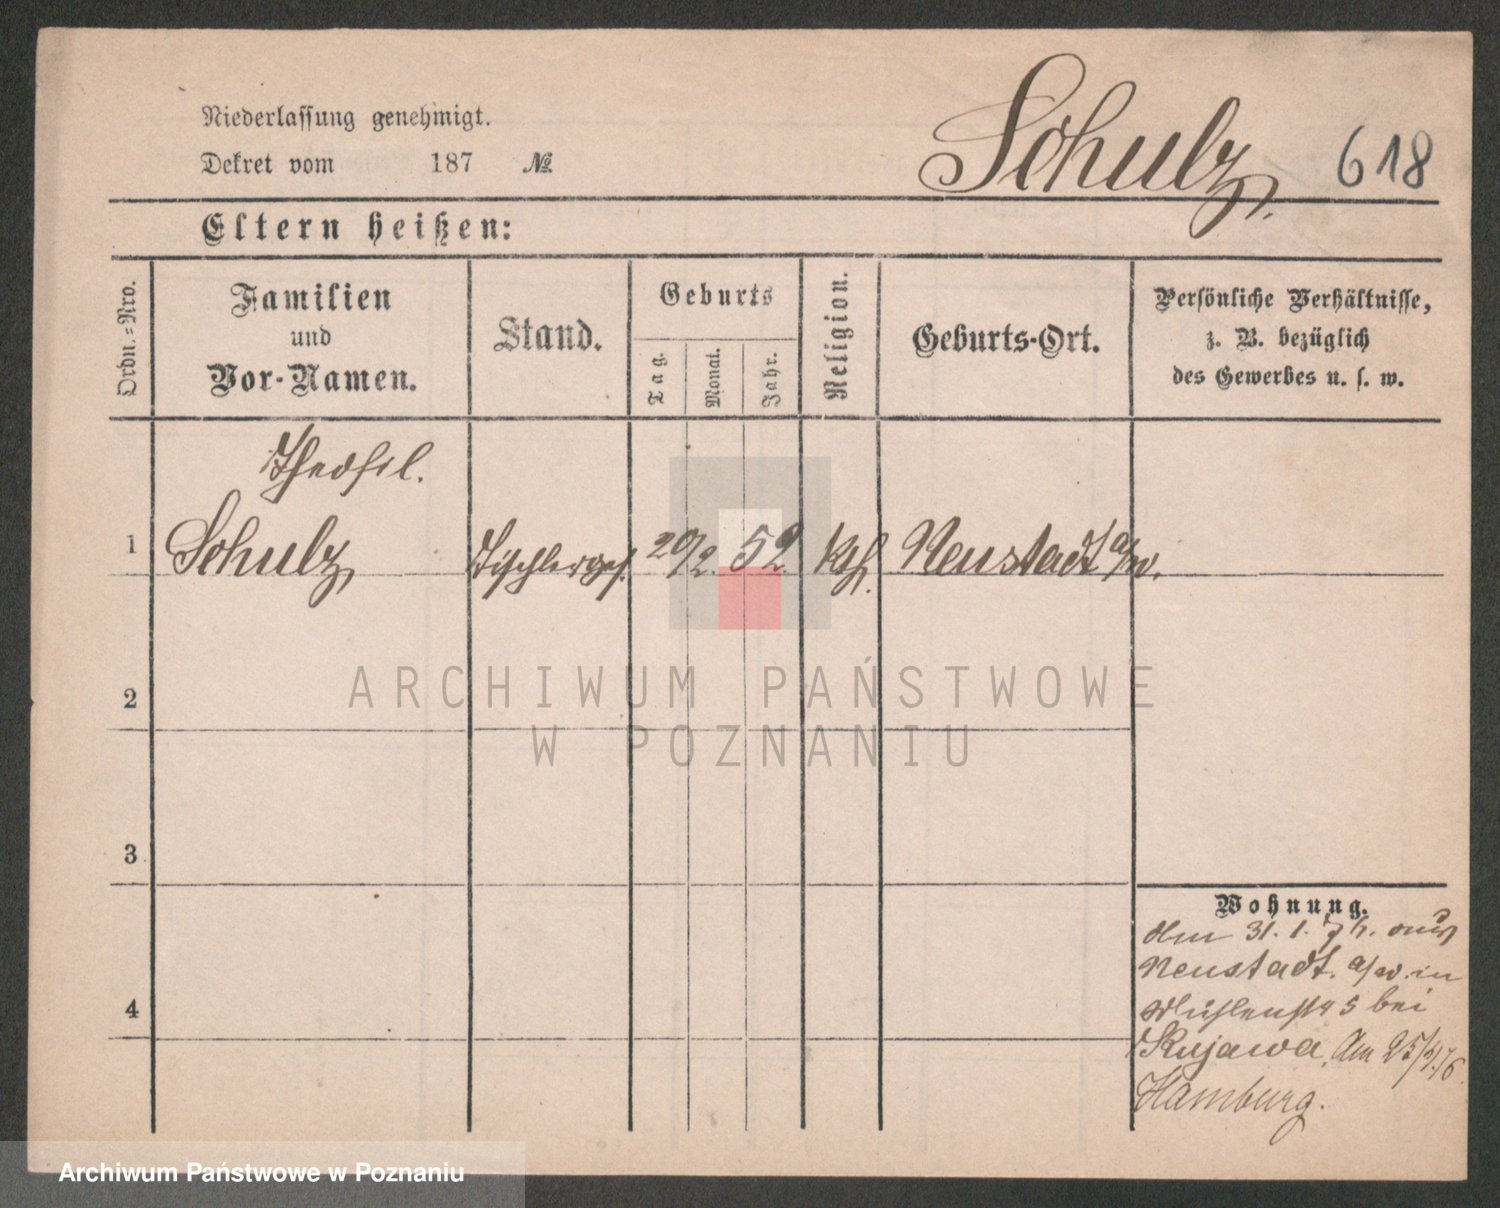 Niederlassung genehmigt.
Dekret vom 187 №
Schulz. 618
Eltern heißen:
Ordn.=Nro.
Familien
und
Vor-Namen.
Stand.
Geburts
Tag.
Monat.
Jahr.
Religion.
Geburts-Ort.
Persönliche Verhältnisse,
z. B. bezüglich
des Gewerbes u. s. w.
Theofil.
1 Schulz Tischlerges. 20/2. 52. kth. Neustadt a/w.
2
3
4
Wohnung.
Am 31. 1. 76. aus
Neustadt. a/w. in
Mühlenstr 5 bei
Kujawa. Am 25/4.76
Hamburg.
ARCHIWUM PAŃSTWOWE
W POZNANIU
Archiwum Państwowe w Poznaniu